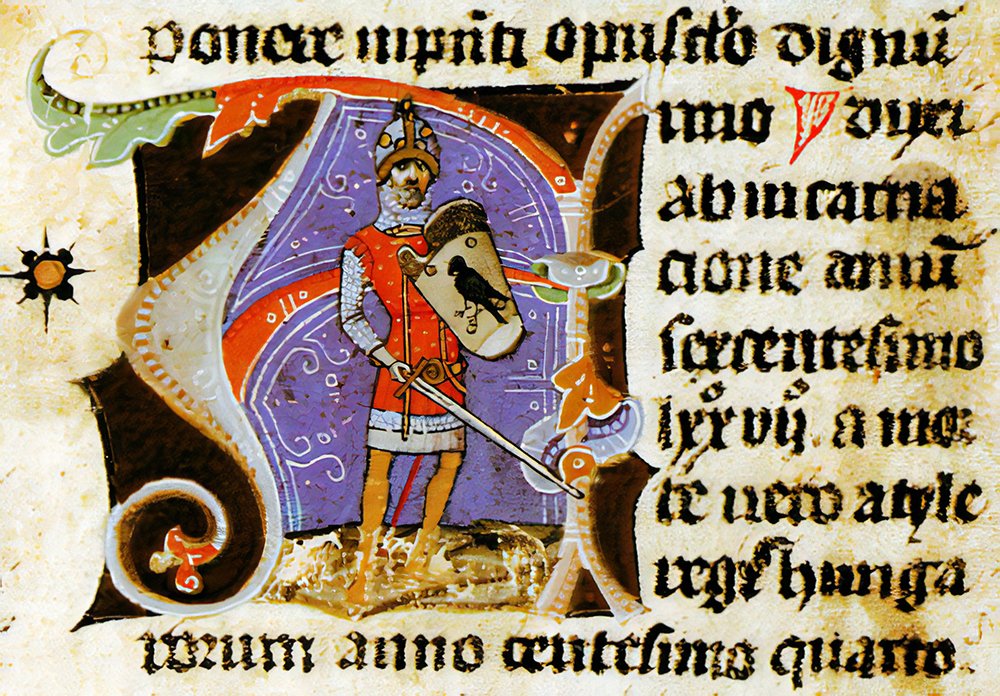 ponere in pn̄ti opusc̄lo dignū
Anno duxi
ab incarna
cione
sexcentesimo
lxxvij a mor
te uero atyle
regis hunga
rorum anno centesimo quarto.